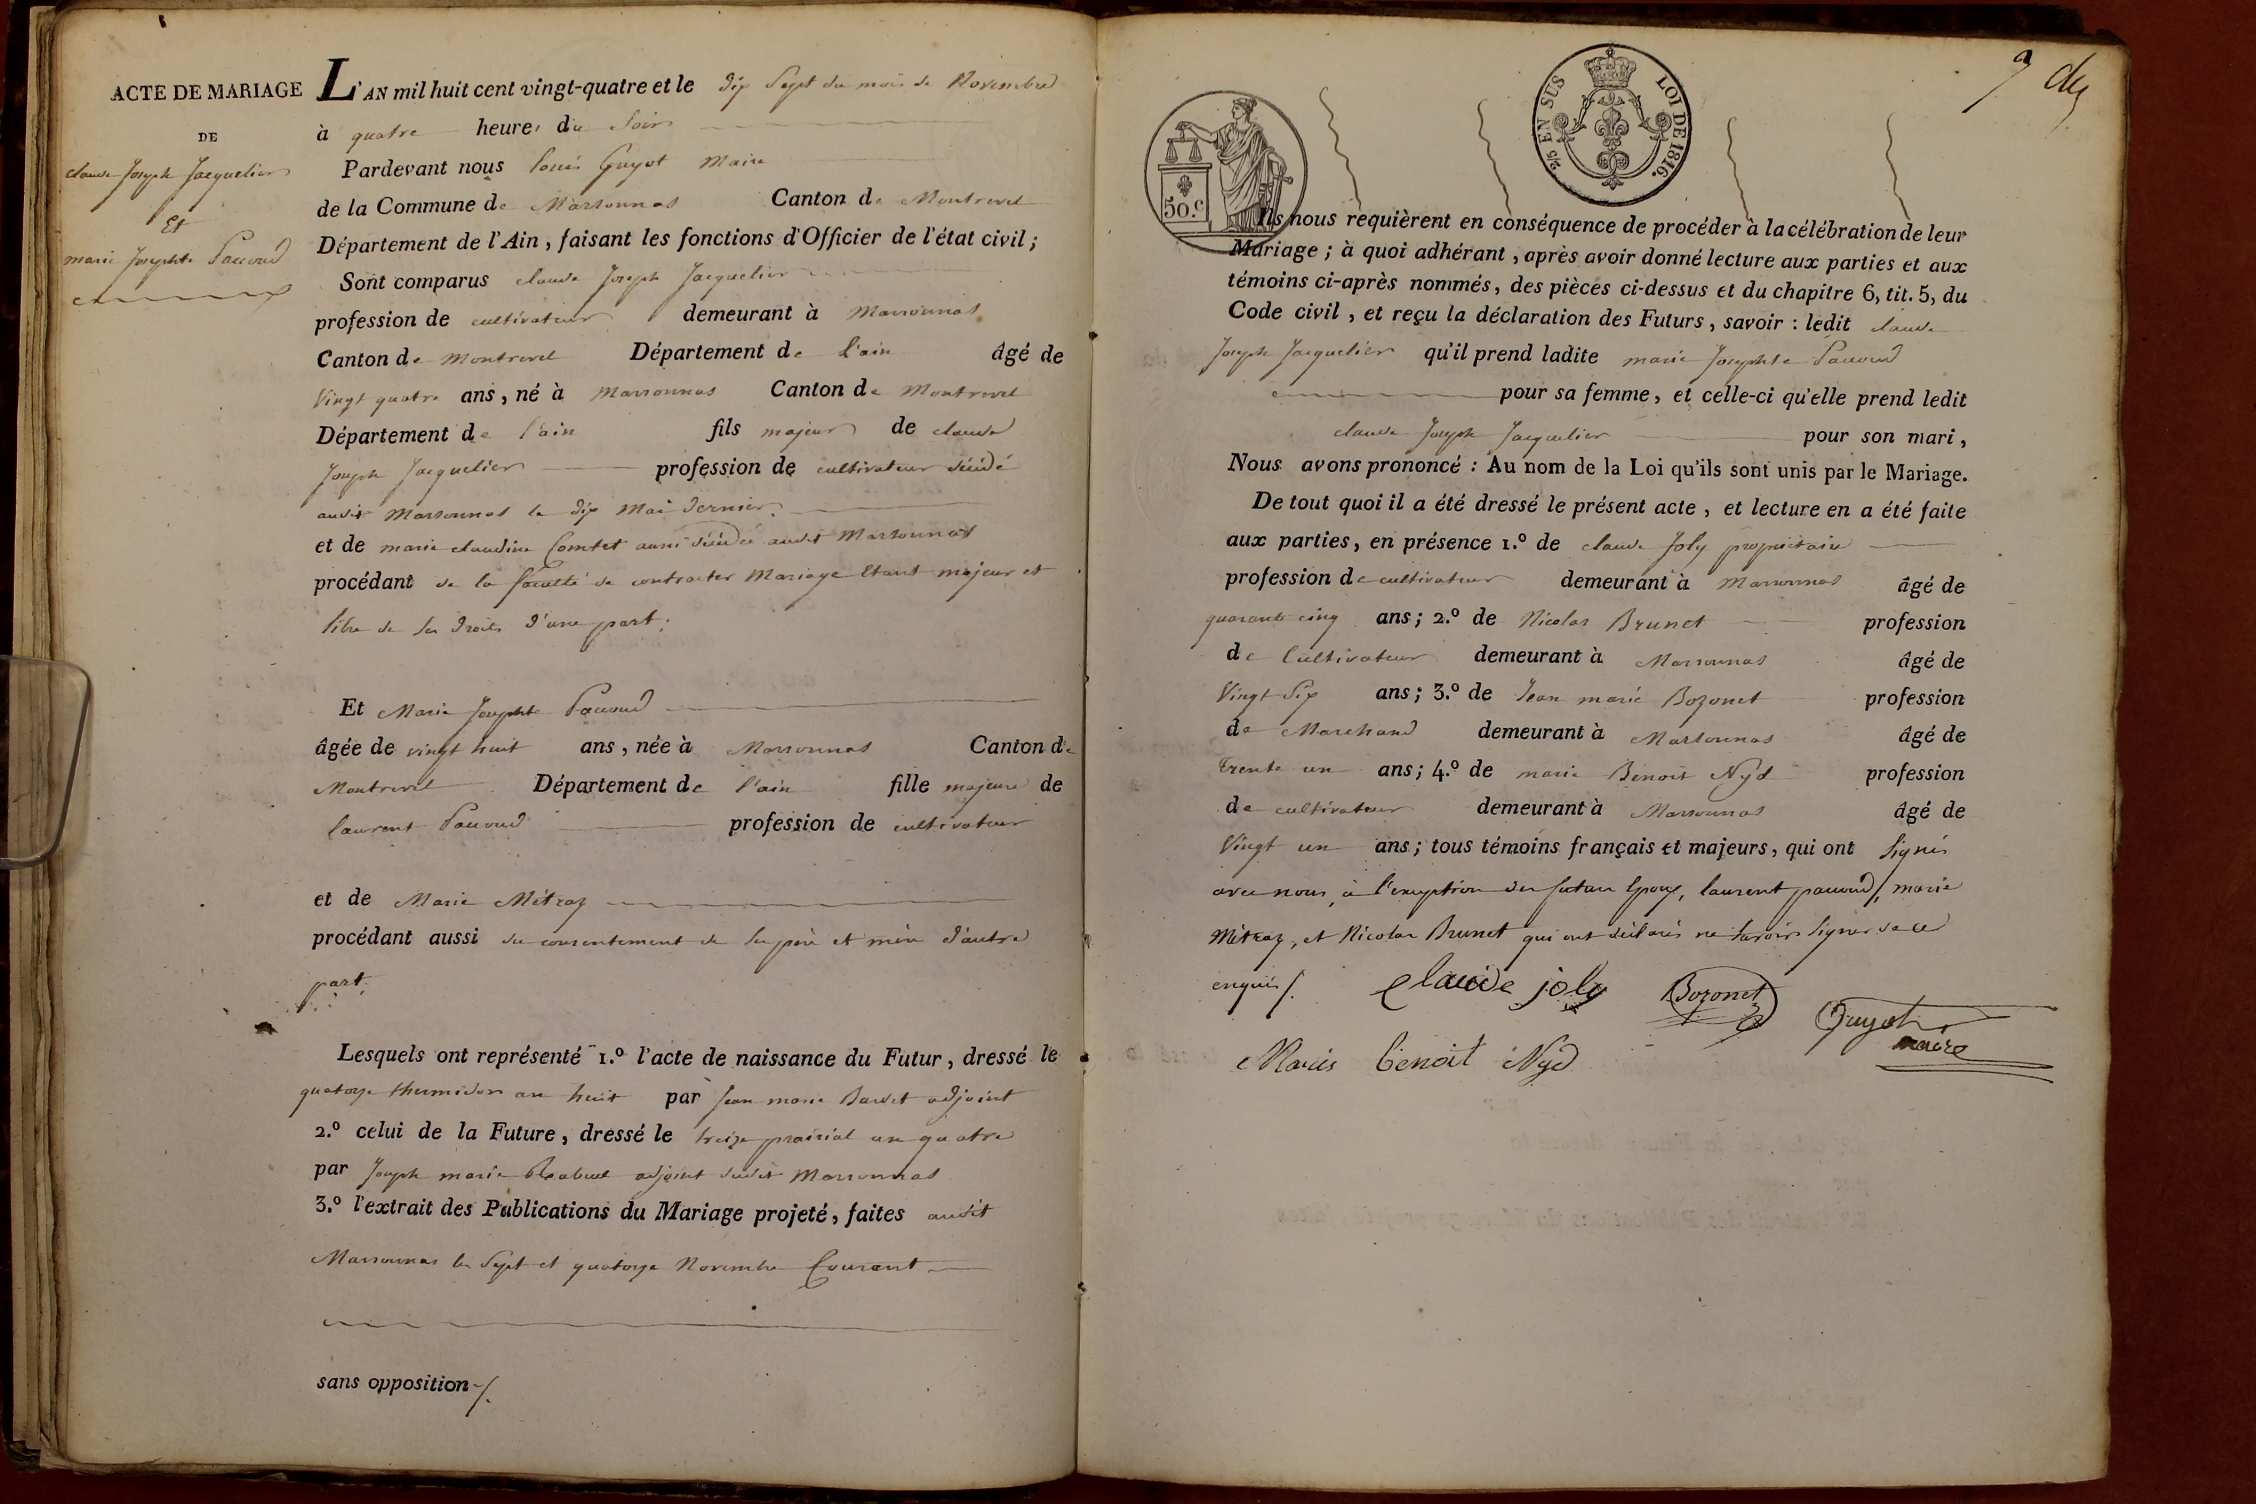 ACTE DE MARIAGE
DE
claude Joseph Jacquelier
Et
marie Josephte Pauvoud
L'AN mil huit cent vingt-quatre et le dix Sept du mois de Novembre
à quatre heures du Soir
Pardevant nous louis Guyot Maire
de la Commune de Marsonnas Canton de Montrevel
Département de l'Ain, faisant les fonctions d'Officier de l'état civil;
Sont comparus claude Joseph Jacquelier
profession de cultivateur demeurant à Marsonnas
Canton de Montrevel Département de l'ain âgé de
Vingt quatre ans, né à Marsonnas Canton de Montrevel
Département de l'ain fils majeur de claude
Joseph Jacquelier profession de cultivateur décédé
audit Marsonnas le dix Mai dernier.
et de marie claudine Comtet aussi décédée audit Marsonnas
procédant de la faculté de contracter Mariage Etant majeur et
libre de ses droits d'une part;
Et Marie Josephte Pauvoud
âgée de vingt huit ans, née à Marsonnas Canton de
Montrevel Département de l'ain fille majeure de
laurent Pauvoud profession de cultivateur
et de Marie Métraz
procédant aussi du consentement de ses père et mère d'autre
part;
Lesquels ont représenté 1.º l'acte de naissance du Futur, dressé le
quatorze thermidor an huit par Jean marie adjoint
2.º celui de la Future, dressé le treize prairial an quatre
par Joseph marie adjoint dudit Marsonnas
3.º l'extrait des Publications du Mariage projeté, faites audit
Marsonnas les Sept et quatorze Novembre Courant
sans opposition ./.
9 dix
50.c
2/5 EN SUS LOI DE 1816.
Ils nous requièrent en conséquence de procéder à la célébration de leur
Mariage; à quoi adhérant, après avoir donné lecture aux parties et aux
témoins ci-après nommés, des pièces ci-dessus et du chapitre 6, tit. 5, du
Code civil, et reçu la déclaration des Futurs, savoir : ledit claude
Joseph Jacquelier qu'il prend ladite marie Josephte Pauvoud
pour sa femme, et celle-ci qu'elle prend ledit
claude Joseph Jacquelier pour son mari,
Nous avons prononcé : Au nom de la Loi qu'ils sont unis par le Mariage.
De tout quoi il a été dressé le présent acte, et lecture en a été faite
aux parties, en présence 1.º de claude Joly propriétaire
profession de cultivateur demeurant à Marsonnas âgé de
quarante cinq ans; 2.º de Nicolas Brunet profession
de Cultivateur demeurant à Marsonnas âgé de
Vingt Six ans; 3.º de Jean marie Bozonet profession
de Marchand demeurant à Marsonnas âgé de
Trente un ans; 4.º de marie Benoit Nyd profession
de cultivateur demeurant à Marsonnas âgé de
Vingt un ans; tous témoins français et majeurs, qui ont Signés
avec nous, à l'exception des futurs Epoux, laurent pauvoud /, marie
Métraz, et Nicolas Brunet qui ont déclarés ne savoir Signer de ce
enquis /.
claude joly Bozonet Guyot
maire
Marie benoit Nyd